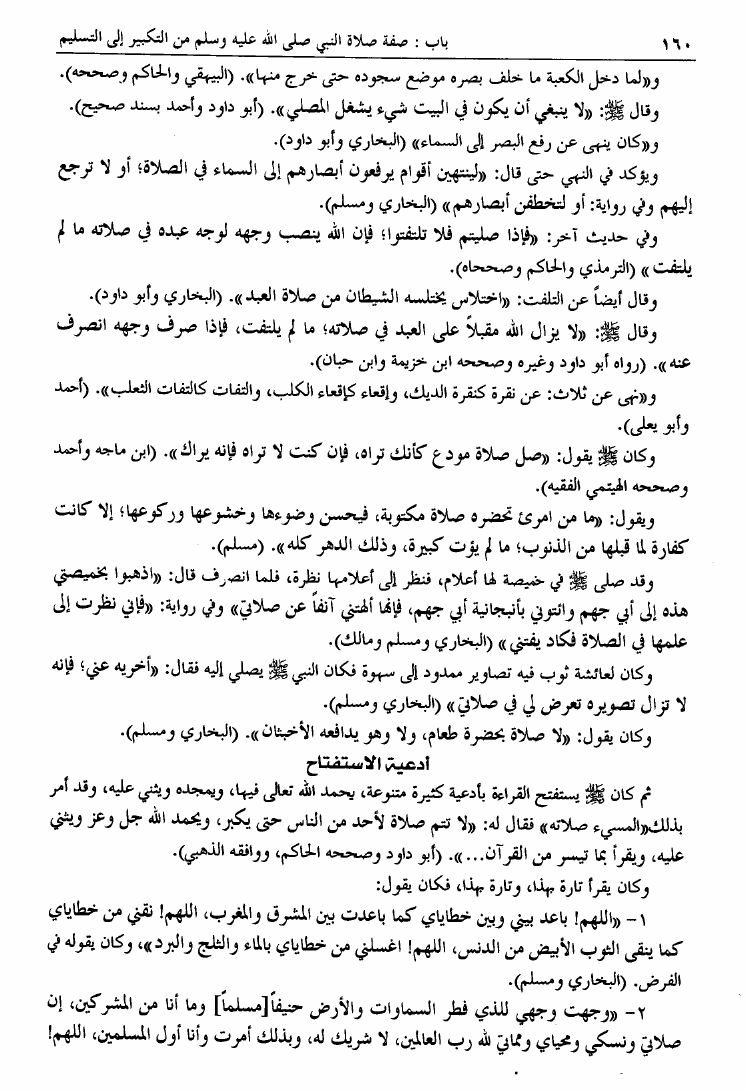 ١٦٠ باب : صفة صلاة النبي صلى الله عليه وسلم من التكبير إلى التسليم
و«لما دخل الكعبة ما خلف بصره موضع سجوده حتى خرج منها». (البيهقي والحاكم وصححه).
وقال ﷺ: «لا ينبغي أن يكون في البيت شيء يشغل المصلي». (أبو داود وأحمد بسند صحيح).
و«كان ينهى عن رفع البصر إلى السماء» (البخاري وأبو داود).
ويؤكد في النهي حتى قال: «لينتهين أقوام يرفعون أبصارهم إلى السماء في الصلاة؛ أو لا ترجع
إليهم وفي رواية: أو لتخطفن أبصارهم» (البخاري ومسلم).
وفي حديث آخر: «فإذا صليتم فلا تلتفتوا؛ فإن الله ينصب وجهه لوجه عبده في صلاته ما لم
يلتفت» (الترمذي والحاكم وصححاه).
وقال أيضاً عن التلفت: «اختلاس يختلسه الشيطان من صلاة العبد». (البخاري وأبو داود).
وقال ﷺ: «لا يزال الله مقبلاً على العبد في صلاته؛ ما لم يلتفت، فإذا صرف وجهه انصرف
عنه». (رواه أبو داود وغيره وصححه ابن خزيمة وابن حبان).
و«نهى عن ثلاث: عن نقرة كنقرة الديك، وإقعاء كإقعاء الكلب، والتفات كالتفات الثعلب». (أحمد
وأبو يعلى).
وكان ﷺ يقول: «صل صلاة مودع كأنك تراه، فإن كنت لا تراه فإنه يراك». (ابن ماجه وأحمد
وصححه الهيتمي الفقيه).
ويقول: «ما من امرئ تحضره صلاة مكتوبة، فيحسن وضوءها وخشوعها وركوعها؛ إلا كانت
كفارة لما قبلها من الذنوب؛ ما لم يؤت كبيرة، وذلك الدهر كله». (مسلم).
وقد صلى ﷺ في خميصة لها أعلام، فنظر إلى أعلامها نظرة، فلما انصرف قال: «اذهبوا بخميصتي
هذه إلى أبي جهم وائتوني بأنبجانية أبي جهم، فإنها ألهتني آنفاً عن صلاتي» وفي رواية: «فإني نظرت إلى
علمها في الصلاة فكاد يفتني» (البخاري ومسلم ومالك).
وكان لعائشة ثوب فيه تصاوير ممدود إلى سهوة فكان النبي ﷺ يصلي إليه فقال: «أخريه عني؛ فإنه
لا تزال تصويره تعرض لي في صلاتي» (البخاري ومسلم).
وكان يقول: «لا صلاة بحضرة طعام، ولا وهو يدافعه الأخبثان». (البخاري ومسلم).
أدعية الاستفتاح
ثم كان ﷺ يستفتح القراءة بأدعية كثيرة متنوعة، يحمد الله تعالى فيها، ويمجده ويثني عليه، وقد أمر
بذلك«المسيء صلاته» فقال له: «لا تتم صلاة لأحد من الناس حتى يكبر، ويحمد الله جل وعز ويثني
عليه، ويقرأ بما تيسر من القرآن...». (أبو داود وصححه الحاكم، ووافقه الذهبي).
وكان يقرأ تارة بهذا، وتارة بهذا، فكان يقول:
١– «اللهم! باعد بيني وبين خطاياي كما باعدت بين المشرق والمغرب، اللهم! نقني من خطاياي
كما ينقى الثوب الأبيض من الدنس، اللهم! اغسلني من خطاياي بالماء والثلج والبرد»، وكان يقوله في
الفرض. (البخاري ومسلم).
٢– «وجهت وجهي للذي فطر السماوات والأرض حنيفاً[مسلماً] وما أنا من المشركين، إن
صلاتي ونسكي ومحياي ومماتي لله رب العالمين، لا شريك له، وبذلك أمرت وأنا أول المسلمين، اللهم!